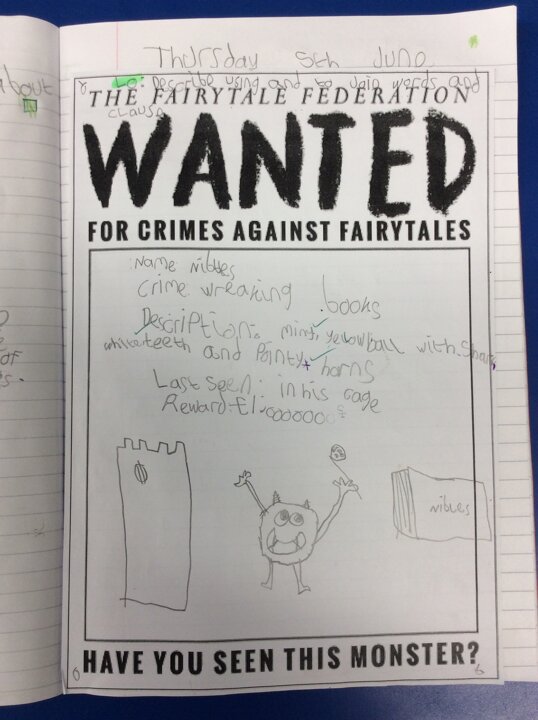 about
Thursday 5th June
Lo: Describe using and to join words and
clause
THE FAIRYTALE FEDERATION
WANTED
FOR CRIMES AGAINST FAIRYTALES
Name nibles
Crime: wreaking books
Description: yelowball with Sharp
white teeth and Pointy horns
Last seen: in his cage
Reward £1:000000
nibles
HAVE YOU SEEN THIS MONSTER?